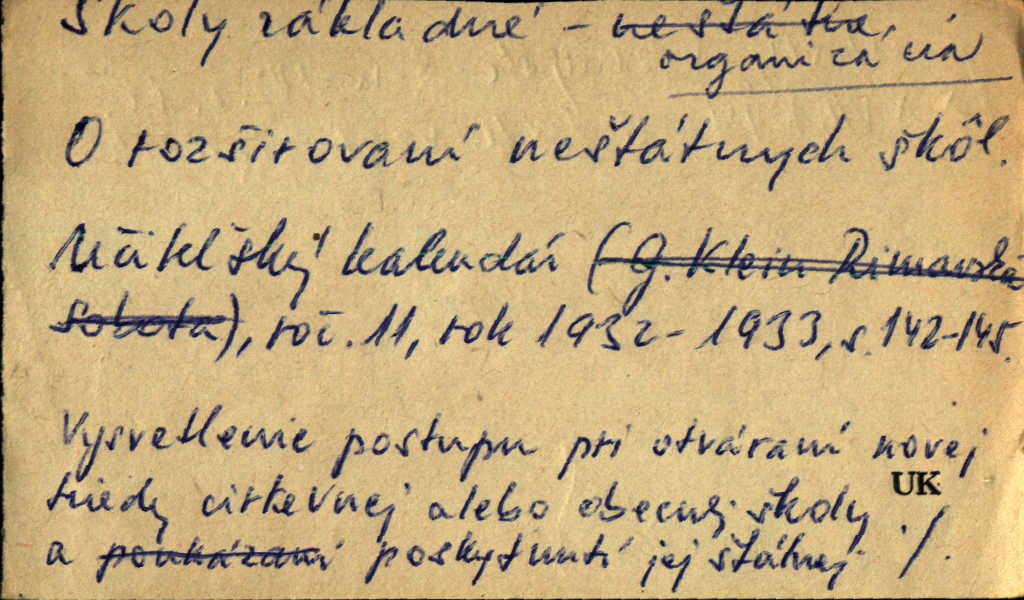 Školy základné - neštátne,
organizácia
O rozširovaní neštátnych škôl.
Učiteľský kalendár (G. Klein Rimavská
Sobota), roč. 11, rok 1932-1933, s. 142-145.
Vysvetlenie postupu pri otváraní novej
UK
triedy cirkevnej alebo obecnej školy
a poukázaní poskytnutí jej štátnej ./.